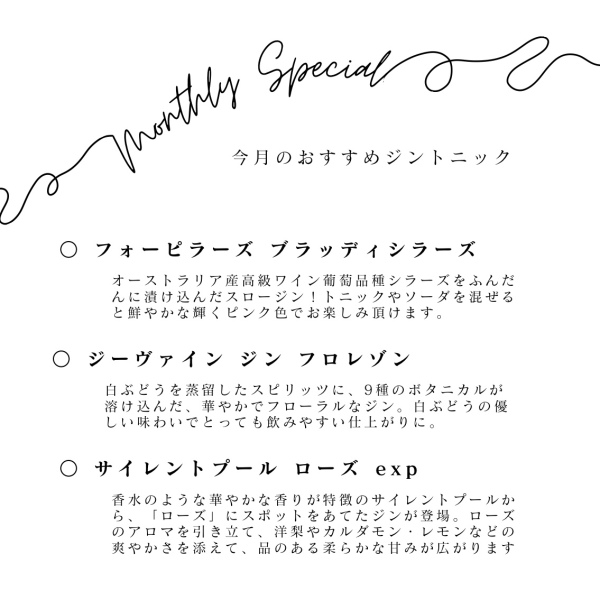 Monthly Special
今月のおすすめジントニック
〇 フォーピラーズ ブラッディシラーズ
オーストラリア産高級ワイン葡萄品種シラーズをふんだ
んに漬け込んだスロージン！トニックやソーダを混ぜる
と鮮やかな輝くピンク色でお楽しみ頂けます。
〇 ジーヴァイン ジン フロレゾン
白ぶどうを蒸留したスピリッツに、9種のボタニカルが
溶け込んだ、華やかでフローラルなジン。白ぶどうの優
しい味わいでとっても飲みやすい仕上がりに。
〇 サイレントプール ローズ exp
香水のような華やかな香りが特徴のサイレントプールか
ら、「ローズ」にスポットをあてたジンが登場。ローズ
のアロマを引き立て、洋梨やカルダモン・レモンなどの
爽やかさを添えて、品のある柔らかな甘みが広がります